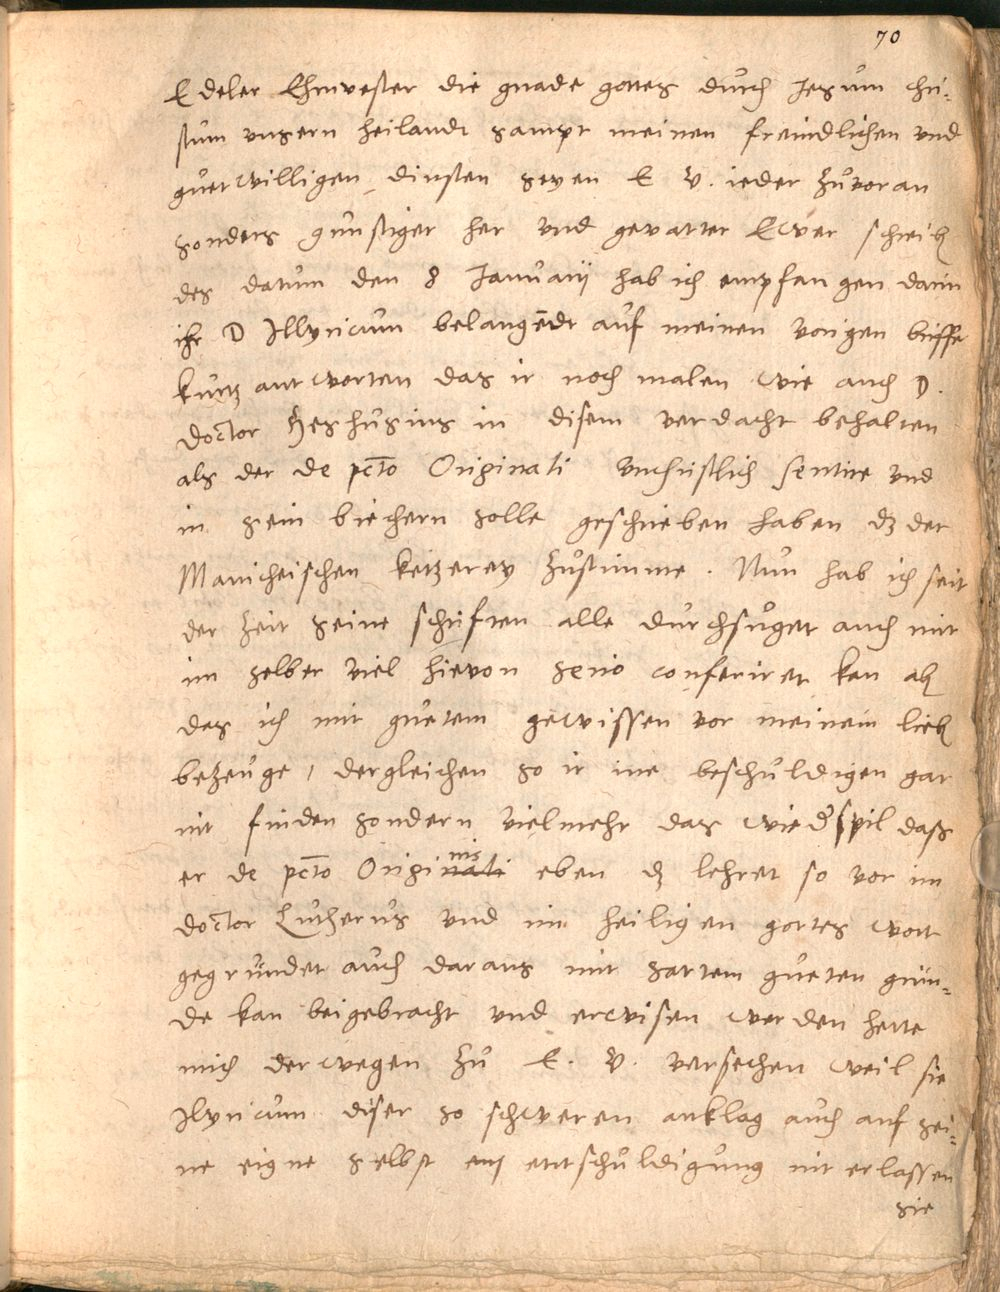 70
Edeler Ehrnvester die gnade gottes durch Jesum chri-
stum unsern heilandt sampt meinen freindlichen vnd
guetwilligen dinsten seyen E V. ieder zuuoran
sonders gunstiger her vnd gevatter Ewer schreib
des datum den 8 Januarij hab ich empfangen darin
ihr D Illyricum belangedt auf meinen vorigen briffe
kurtz antworten das ir noch malen wie auch D.
doctor Heshusius in disem verdacht behalten
als der de pcto Originali vnchristlich sentire vnd
in sein biechern solle geschrieben haben dz der
Manicheischen ketzerey zustimme. Nun hab ich seit
der zeit seine schriften alle durchsuget auch mit
im selber viel hievon serio conferiret kan ab
das ich mit guetem gewissen vor meinem lieb
bezeuge / dergleichen so ir ine beschuldigen gar
nit finden sondern vielmehr das wiederspil dass
er de pcto Originis eben dz lehret so vor im
doctor Lutherus vnd im heiligen gottes wort
gegrundet auch daraus mit sattem gueten grun-
de kan beigebracht vnd erwisen werden hette
mich derwegen zu E. V. versechen weil sie
Ilyricum diser so schweren anklag auch auf sei-
ne eigne selbst entschuldigung nit erlassen
sie